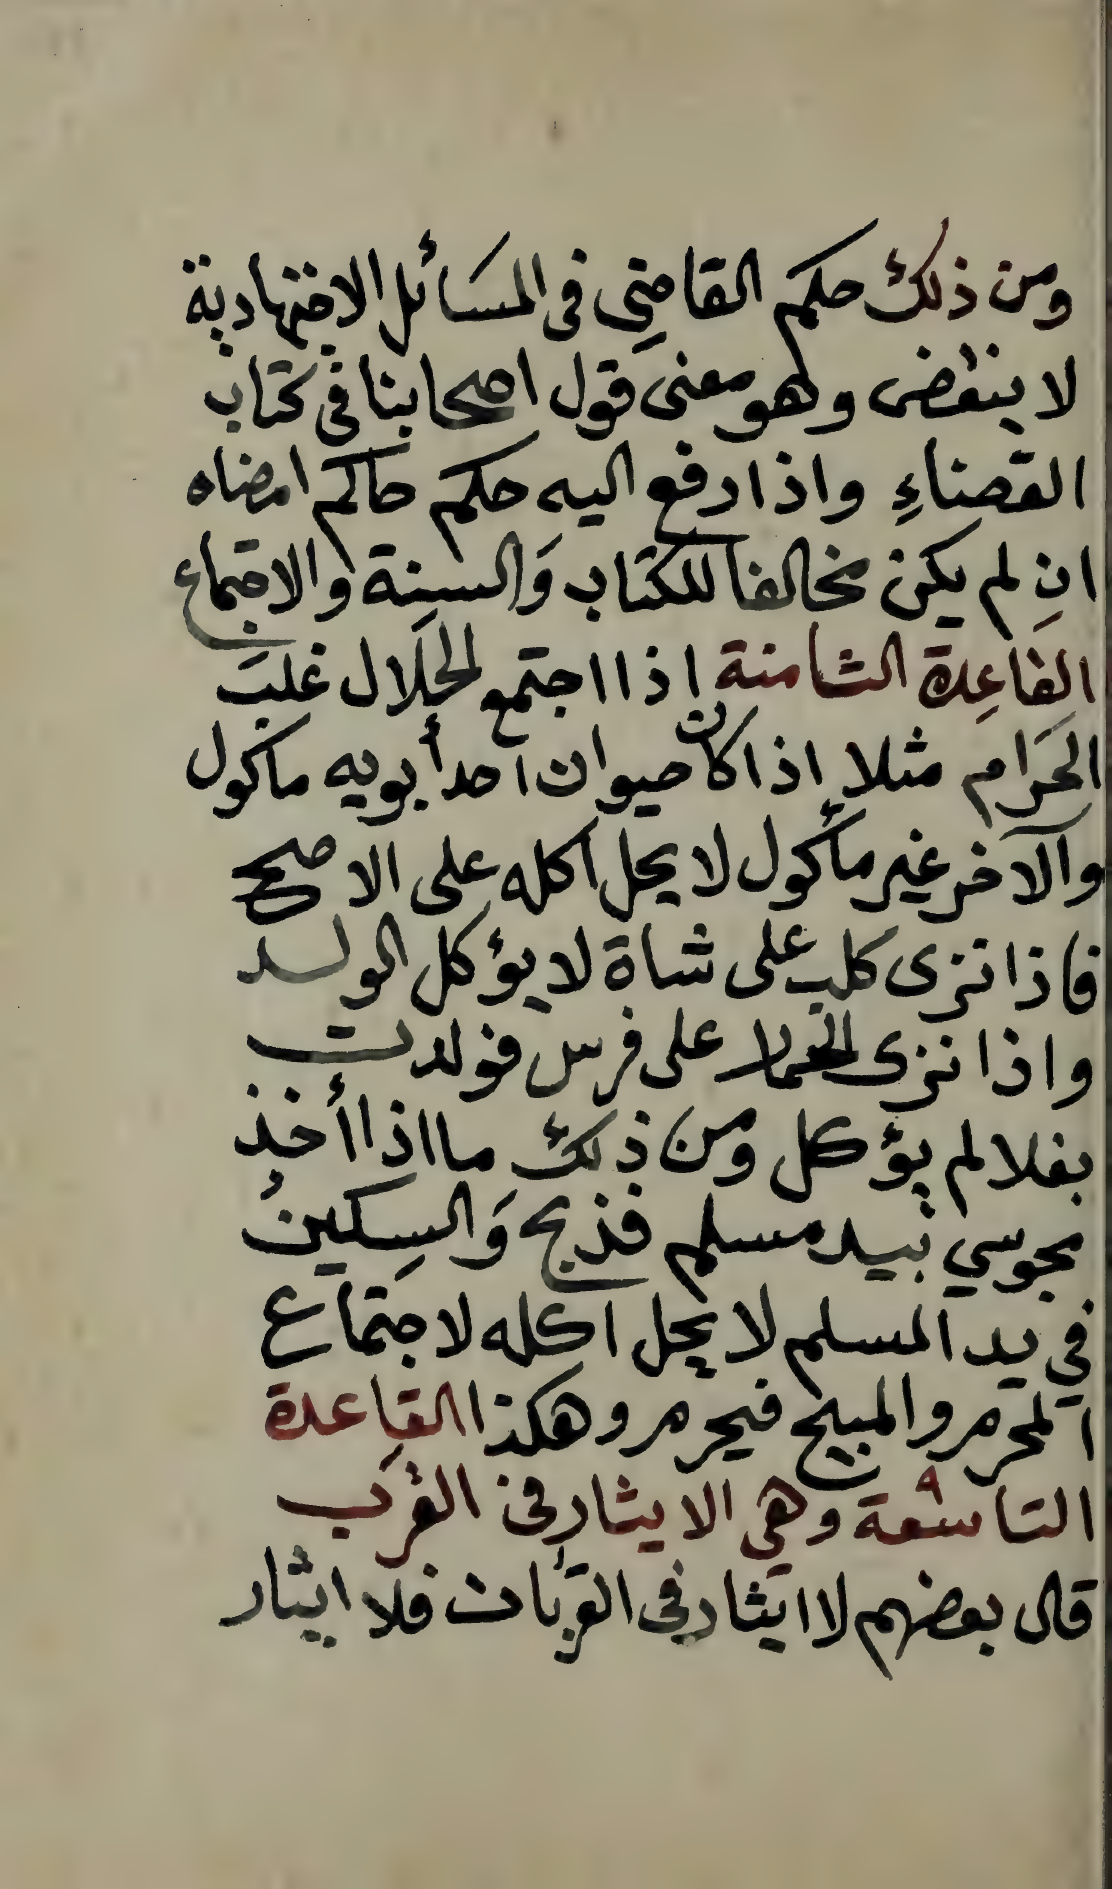 ومن ذلك حكم القاضي في المسائل الاجتهادية
لا ينقض وهو معنى قول اصحابنا في كتاب
القضاءِ واذا رفع اليه حكم حاكم امضاه
ان لم يكن مخالفا للكتاب وَالسنة والاجماع
القاعِدة الثامنة اذا اجتمع لحلال غلبَ
الحَرام مثلا إذا كان حيوان احد أبويه ماكول
والآخر غير مأكول لا يحل اكله على الاصح
فاذا نزى كلب على شاة لا يؤكل الولد
واذا نزى الحمار على فرس فولدت
بغلا لم يؤكل ومن ذلك ما اذا أخذ
مجوسي بيد مسلم فذبح وَالسِكين
في يد المسلم لا يحل اكله لاجتماع
المحرم والمبيح فيحرم وهكذا القاعدة
التاسعة ٩ وهي الايثار في القرَب
قال بعضهم لا ايثار في القربات فلا ايثار